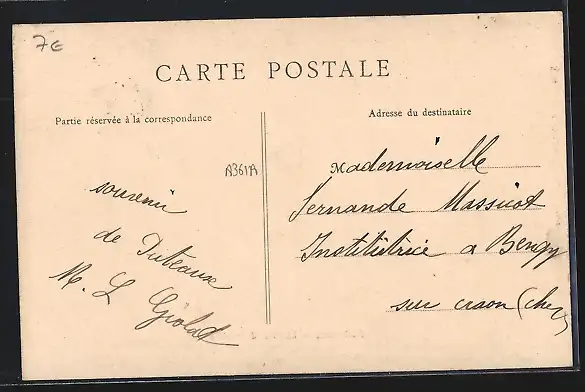 7€
CARTE POSTALE
Partie réservée à la correspondance
Adresse du destinataire
A361A
souvenir
de Puteaux
M. L Giolat
Mademoiselle
Fernande Massicot
Institutrice a Bengy
sur craon (cher)